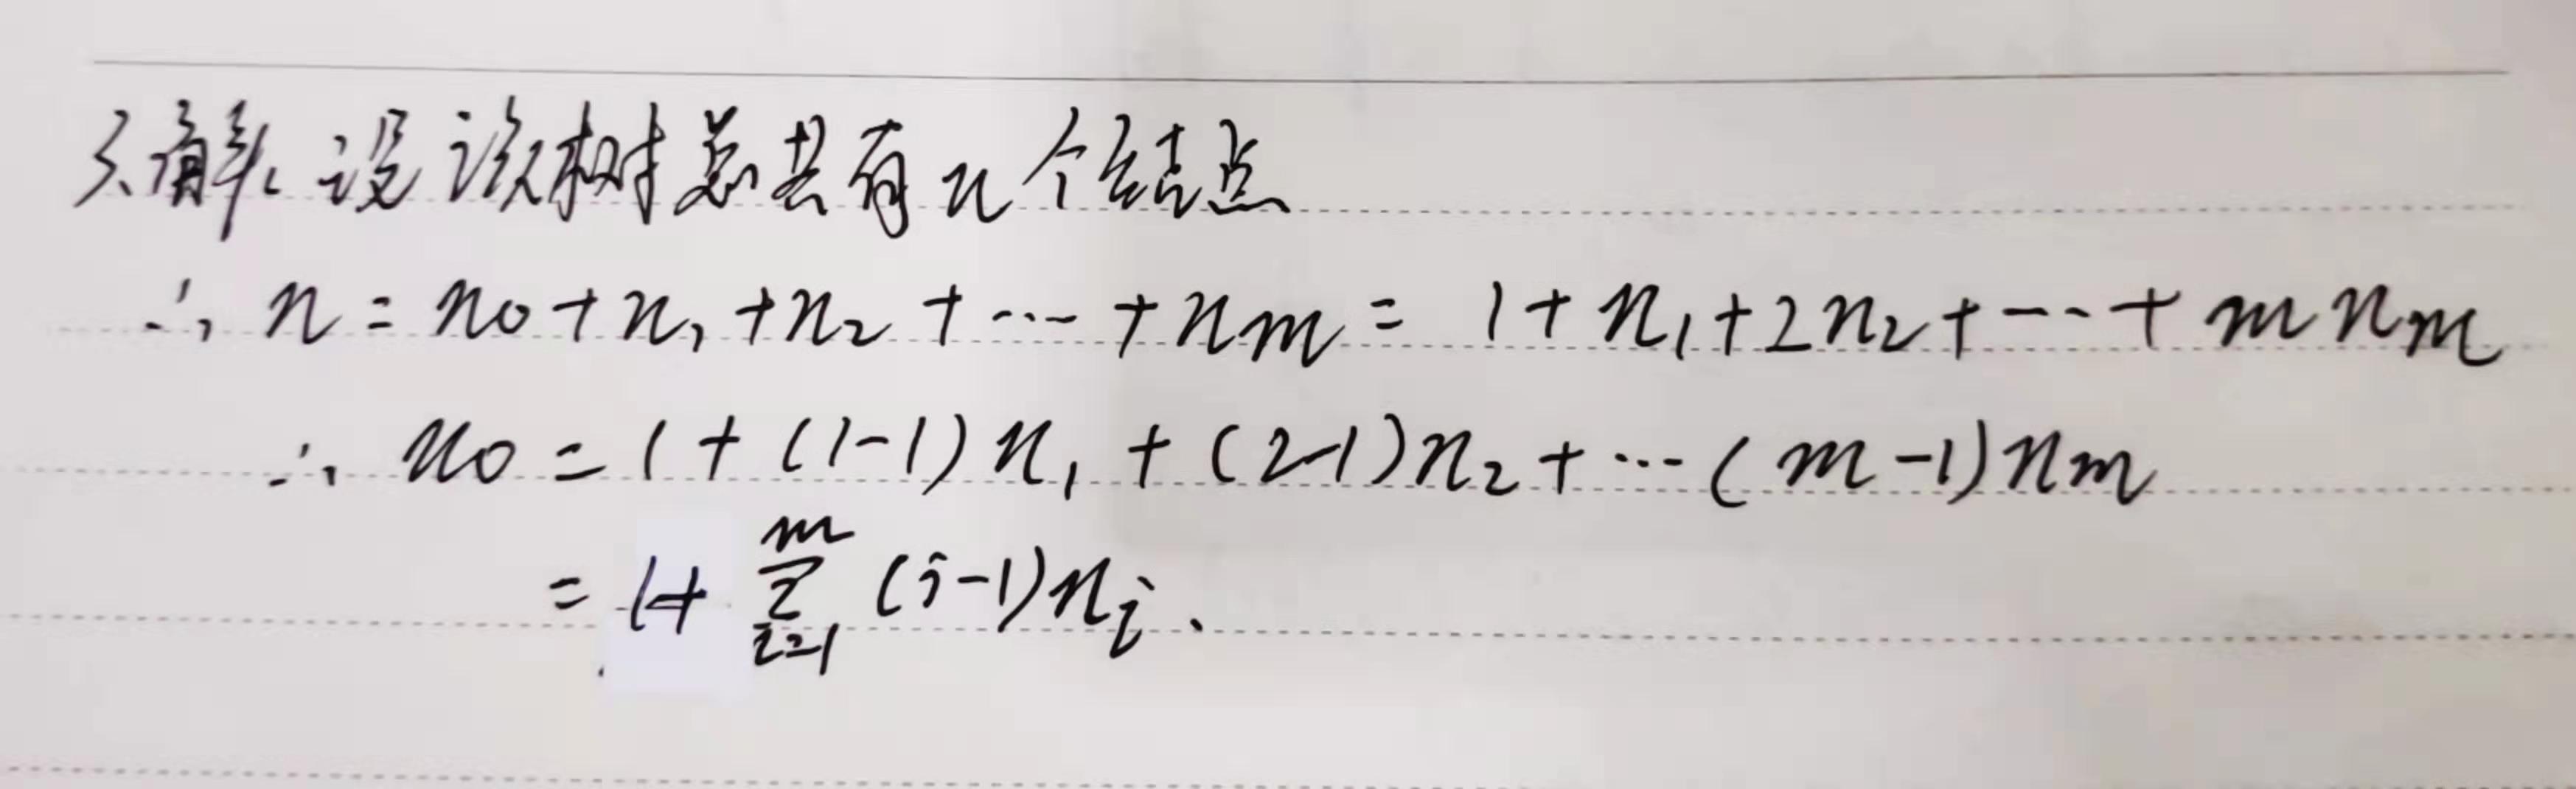 3、解、设该树总共有n个结点
∴ n = n₀ + n₁ + n₂ + ⋯ + nₘ = 1 + n₁ + 2n₂ + ⋯ + m nₘ
∴ n₀ = 1 + (1-1)n₁ + (2-1)n₂ + ⋯ (m-1)nₘ
= 1 + ∑ᵢ₌₁ᵐ (i-1)nᵢ.